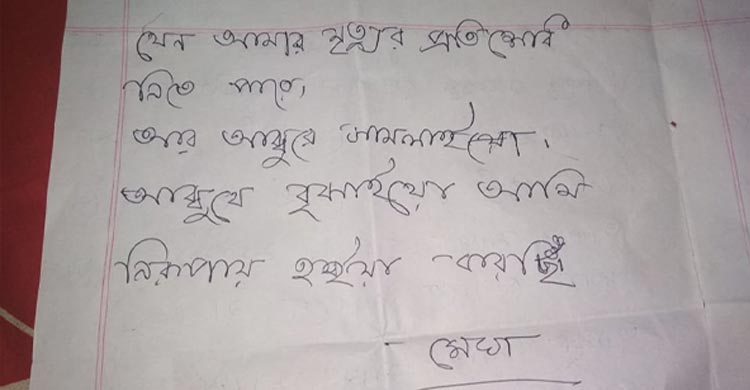 যেন আমার মৃত্যুর প্রতিশোধ
নিতে পারে,
আর আব্বুরে সামলাইয়ো।
আব্বুখে বুঝাইয়ো আমি
নিরুপায় হইয়া করছি
- মেঘা